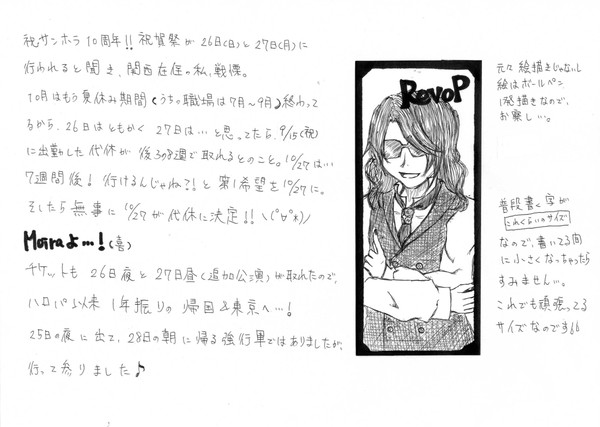 祝サンホラ10周年!! 祝賀祭が26日(日)と27日(月)に
行われると聞き、関西在住の私、戦慄。
10月はもう夏休み期間(うちの職場は7月〜9月)終わって
るから、26日はともかく 27日は…と思ってたら、9/15(祝)
に出勤した代休が 後ろ8週で取れるとのこと。10/27は…
7週間後! 行けるんじゃね?!と 第1希望を10/27に。
そしたら 無事に 10/27が 代休に決定!! ヽ(°∀°*)ノ
Moiraよ…!(喜)
チケットも 26日夜と27日昼(追加公演)が取れたので、
ハロパ以来 1年振りの 帰国&東京へ…!
25日の夜に出て、28日の朝に帰る強行軍ではありましたが、
行って参りました♪
RevoP
元々 絵描きじゃないし
絵はボールペン
1発描きなので、
お察し…。
普段書く字が
これくらいのサイズ
なので、書いてる間
に小さくなっちゃったら
すみません…。
これでも頑張ってる
サイズなのです